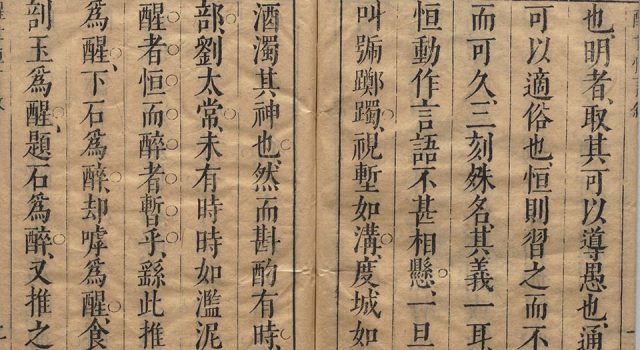 也、明者、取其可以導愚也、通
可以適俗也、恒則習之而不
而可久、三刻殊名、其義一耳
恒動作言語不甚相懸、一旦
叫號躑躅、視塹如溝、度城如
酒濁其神也、然而斟酌有時、
部、劉太常、未有時時如濫泥
醒者恒而醉者暫乎、繇此推
爲醒、下石爲醉、却嘑爲醒、食
剖玉爲醒、題石爲醉、又推之